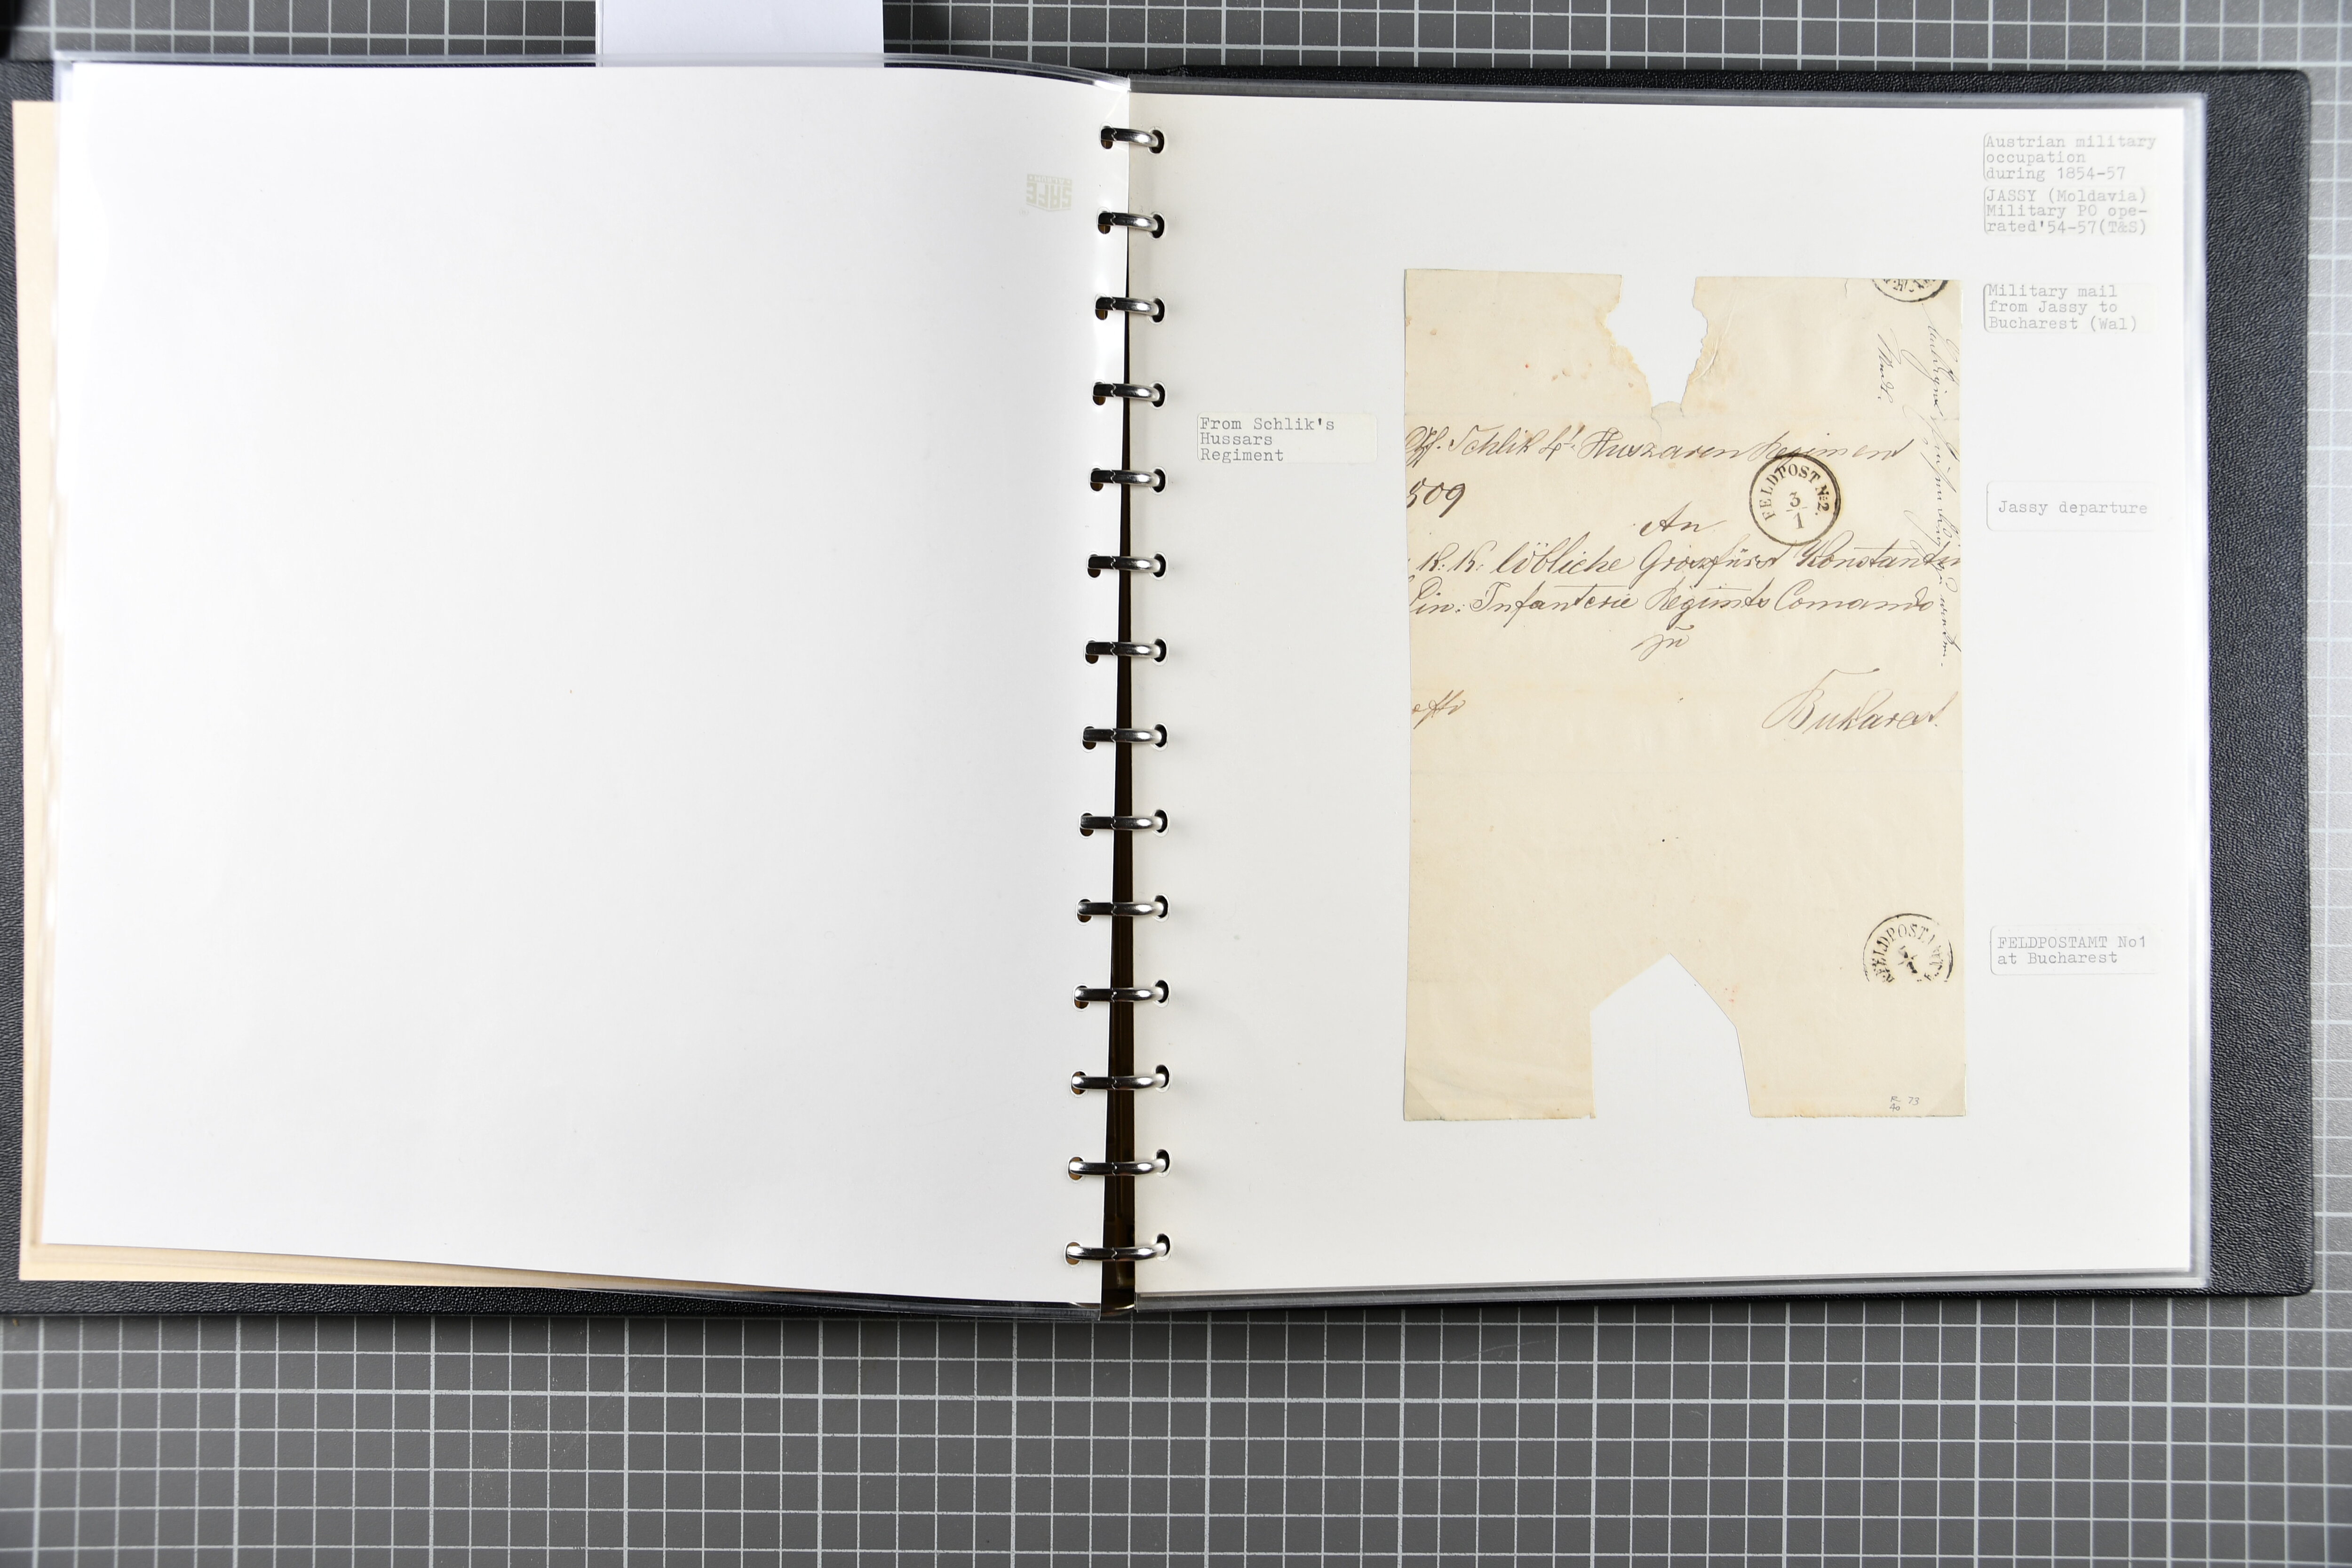 SAFE
Austrian military
occupation
during 1854-57
JASSY (Moldavia)
Military PO ope-
rated'54-57(T&S)
Military mail
from Jassy to
Bucharest (Wal)
From Schlik's
Hussars
Regiment
Schlik 4t Huszaren Regiment
509
FELDPOST No 2.
3
1
An
K: K: löbliche Grossfürst Konstantin
Lin: Infanterie Regimts Comando
zu
Bukarest.
Jassy departure
FELDPOSTAMT
FELDPOSTAMT No1
at Bucharest
R 73
40